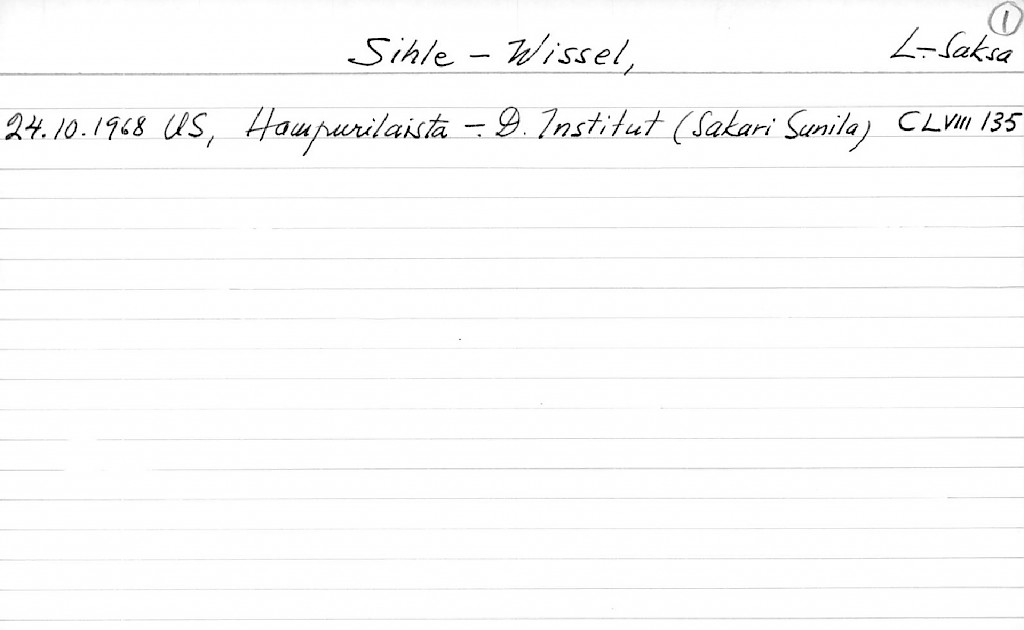 1
Sihle - Wissel, L-Saksa
24.10.1968 US, Hampurilaista - D. Institut (Sakari Sunila) CLVIII 135